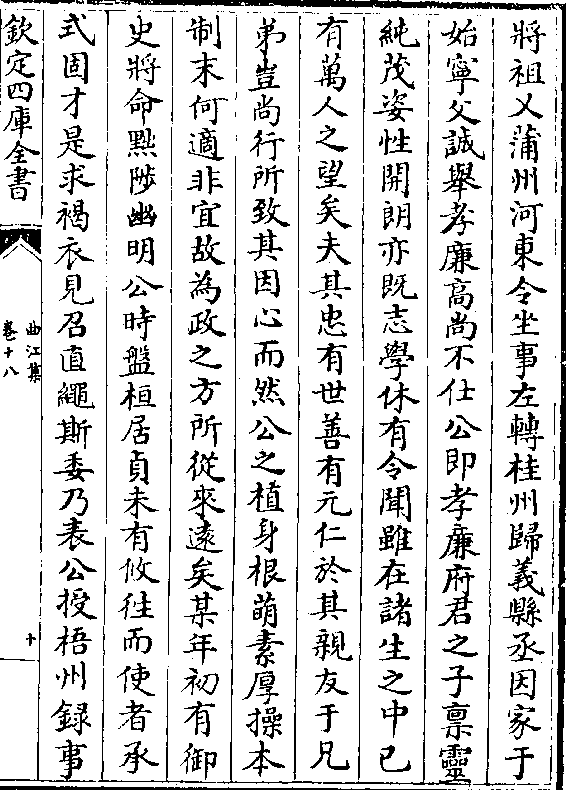 將祖乂蒲州河東令坐事左轉桂州歸義縣丞因家于
始寧父誠舉孝廉高尚不仕公即孝廉府君之子禀靈
純茂姿性開朗亦既志學休有令聞雖在諸生之中已
有萬人之望矣夫其忠有世善有元仁於其親友于兄
弟豈尚行所致其因心而然公之植身根萌素厚操本
制末何適非宜故為政之方所從來遠矣某年初有御
史將命黜陟幽明公時盤桓居貞未有攸徃而使者承
式固才是求褐衣見召直繩斯委乃表公授梧州録事
欽定四庫全書
曲江集
卷十八
十